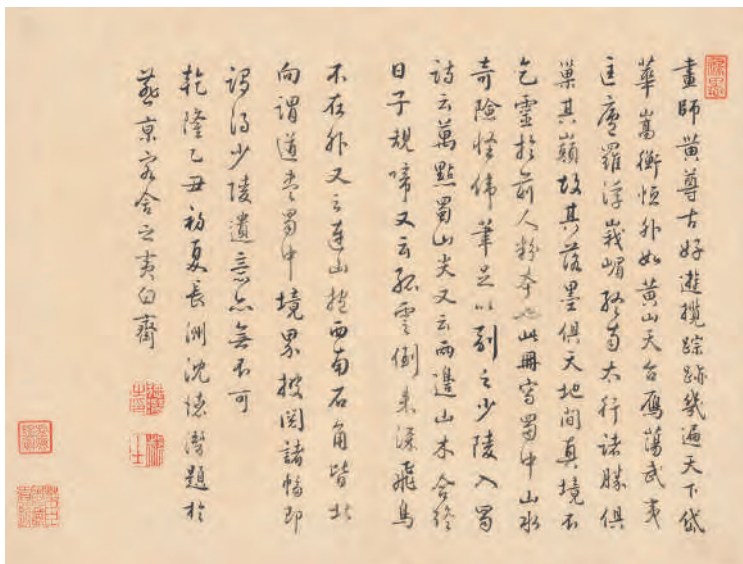 畫師黃尊古好遊攬踪跡幾遍天下岱
華嵩衡恒外如黃山天台雁蕩武夷
匡廬羅浮峩嵋終南太行諸勝俱
巢其巔故其落墨俱天地間真境不
乞靈於前人粉本也此冊寫蜀中山水
奇險怪偉筆足以副之少陵入蜀
詩云萬點蜀山尖又云兩邊山木合終
日子規啼又云孤雲倒來深飛鳥
不在外又云連山抱西南石角皆北
向謂道盡蜀中境界披閱諸幅即
謂得少陵遺意亦無不可
乾隆乙丑初夏長洲沈德潛題於
燕京客舍之夷白齋